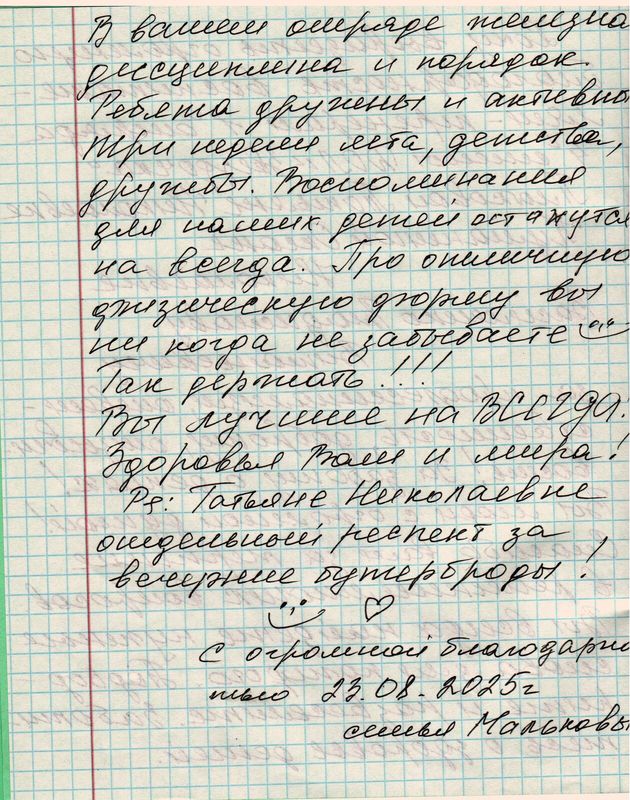 В вашем отряде железна
дисциплина и порядок.
Ребята дружны и активны
Три недели лета, детства,
дружбы. Воспоминания
для наших детей останутся
на всегда. Про отличную
физическую форму вы
ни когда не забываете
Так держать!!!
Вы лучшие на ВСЕГДА!
Здоровья Вам и мира!
Ps: Татьяне Николаевне
отдельный респект за
вечерние бутерброды!
С огромной благодарно
тью 23.08.2025г
семья Мальковы